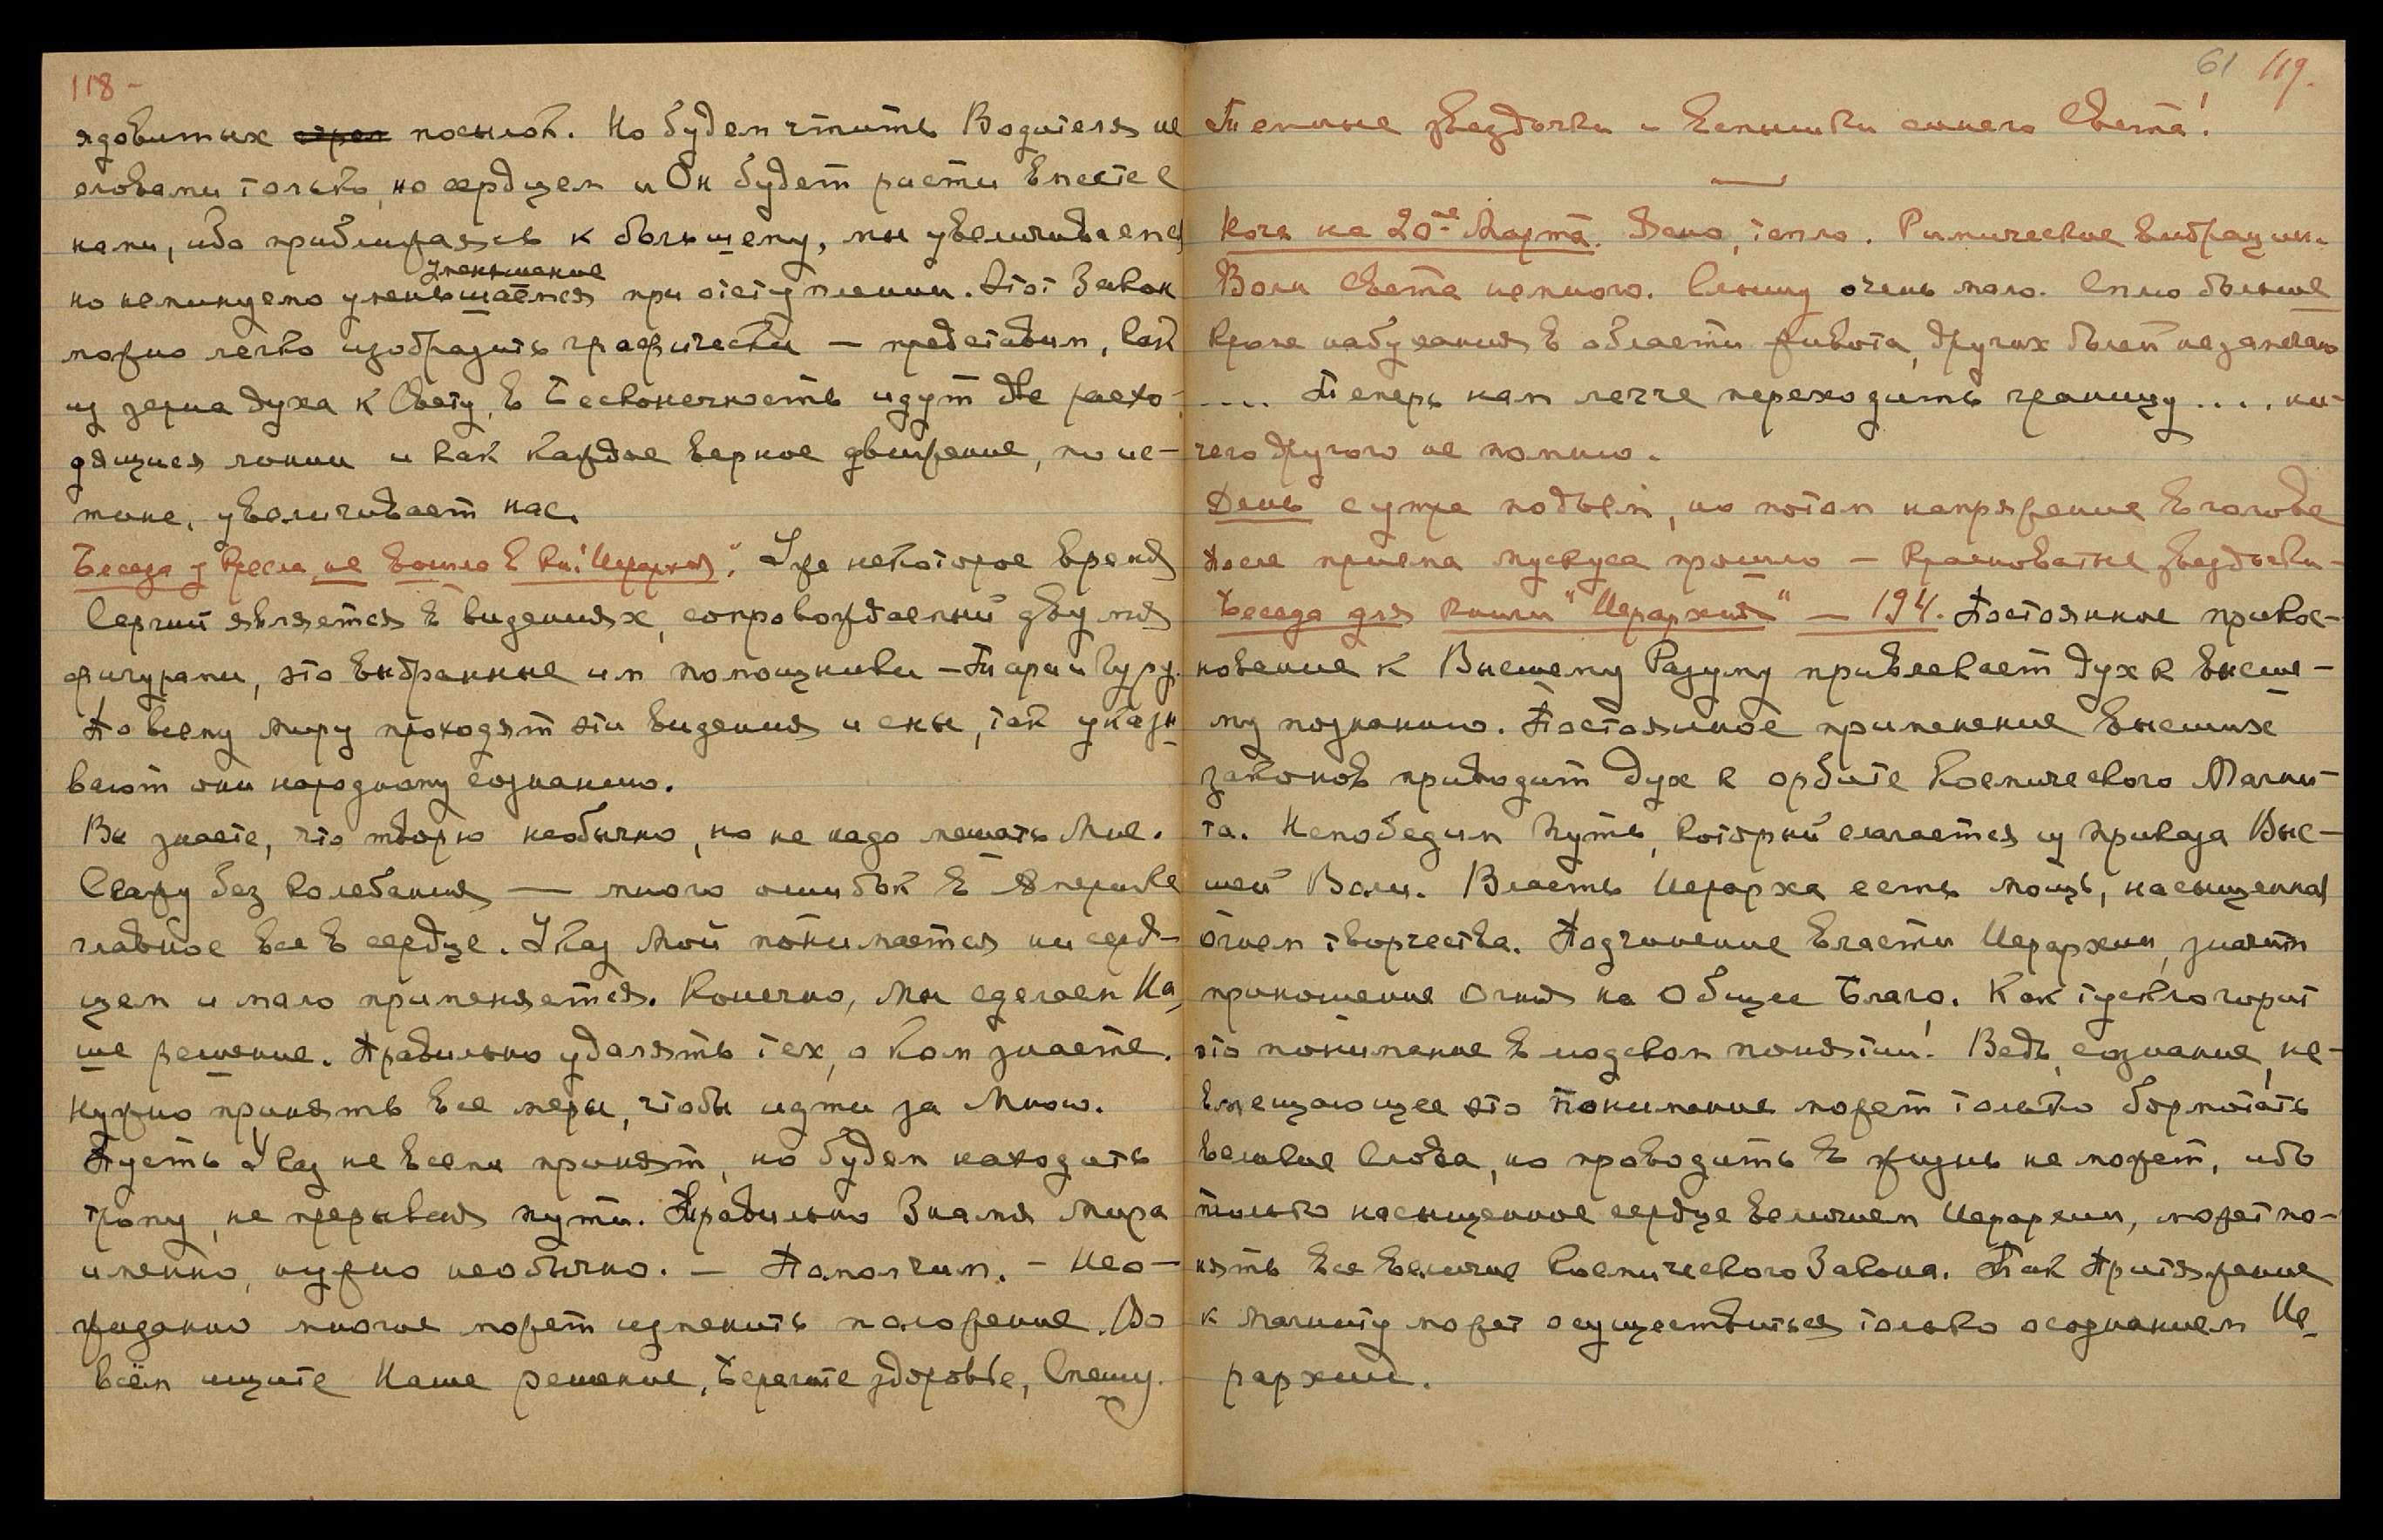 118 -
ядовитых стрел посылок. Но будем чтить Водителя не
словами только, но сердцем и Он будет расти вместе с
нами, ибо приближаясь к большему, мы увеличиваемся
уменьшение
но неминуемо уменьшается при отступлении. Этот Закон
можно легко изобразить графически — представим, как
из зерна духа к Свету, в Бесконечность идут две расхо-
дящиеся линии и как каждое верное движение, по ис-
тине, увеличивает нас.
Беседа у кресла, не вошло в кн. "Иерархия". Уже некоторое время
Сергий является в видениях, сопровождаемый двумя
фигурами, это выбранные им помощники — Тара и Гуру.
По всему миру проходят эти видения и сны, так указы
вают они народному сознанию.
Вы знаете, что творю необычно, но не надо мешать Мне.
Скажу без колебания — много ошибок в Америке
главное все в сердце. Указ Мой понимается ни серд-
цем и мало применяется. Конечно, Мы сделаем На
ше решение. Правильно удалять тех, о ком знаете.
Нужно принять все меры, чтобы идти за Мною.
Пусть Указ не всеми принят, но будем находить
тропу, не прерывая пути. Правильно Знамя Мира
именно, нужно необычно. — Помолчим. — Нео-
жиданно многое может изменить положение. Во
всём ищите Наше решение, Берегите здоровье, Спешу.
61 119.
Темные звездочки и вспышки синего Света!
Ночь на 20-ое Марта. Ясно, тепло. Ритмические вибрации.
Волн Света немного. Слышу очень мало. Сплю больше
Кроме набухания в области живота, других болей не замечаю
.... Теперь нам легче переходить границу .... ни-
чего другого не помню.
День с утра подъем, но потом напряжение в голове
После приема мускуса прошло — Красноватые звездочки -
Беседа для книги "Иерархия" — 194. Постоянное прикос-
новение к Высшему Разуму привлекает дух к высше-
му познанию. Постоянное применение высших
законов приводит дух к орбите Космического Магни-
та. Непобедим путь, который слагается из приказа Выс-
шей Воли. Власть Иерарха есть мощь, насыщенная
огнем творчества. Подчинение власти Иерархии, значит
приношение Огня на Общее Благо. Как тускло горит
это понимание в людском понятии! Ведь, сознание, не-
вмещающее это понимание может только бормотать
великие слова, но проводить в жизнь не может, ибо
только насыщенное сердце величием Иерархии, может по-
нять все величие Космического Закона. Так Притяжение
к магниту может осуществиться только осознанием Ие
рархии.